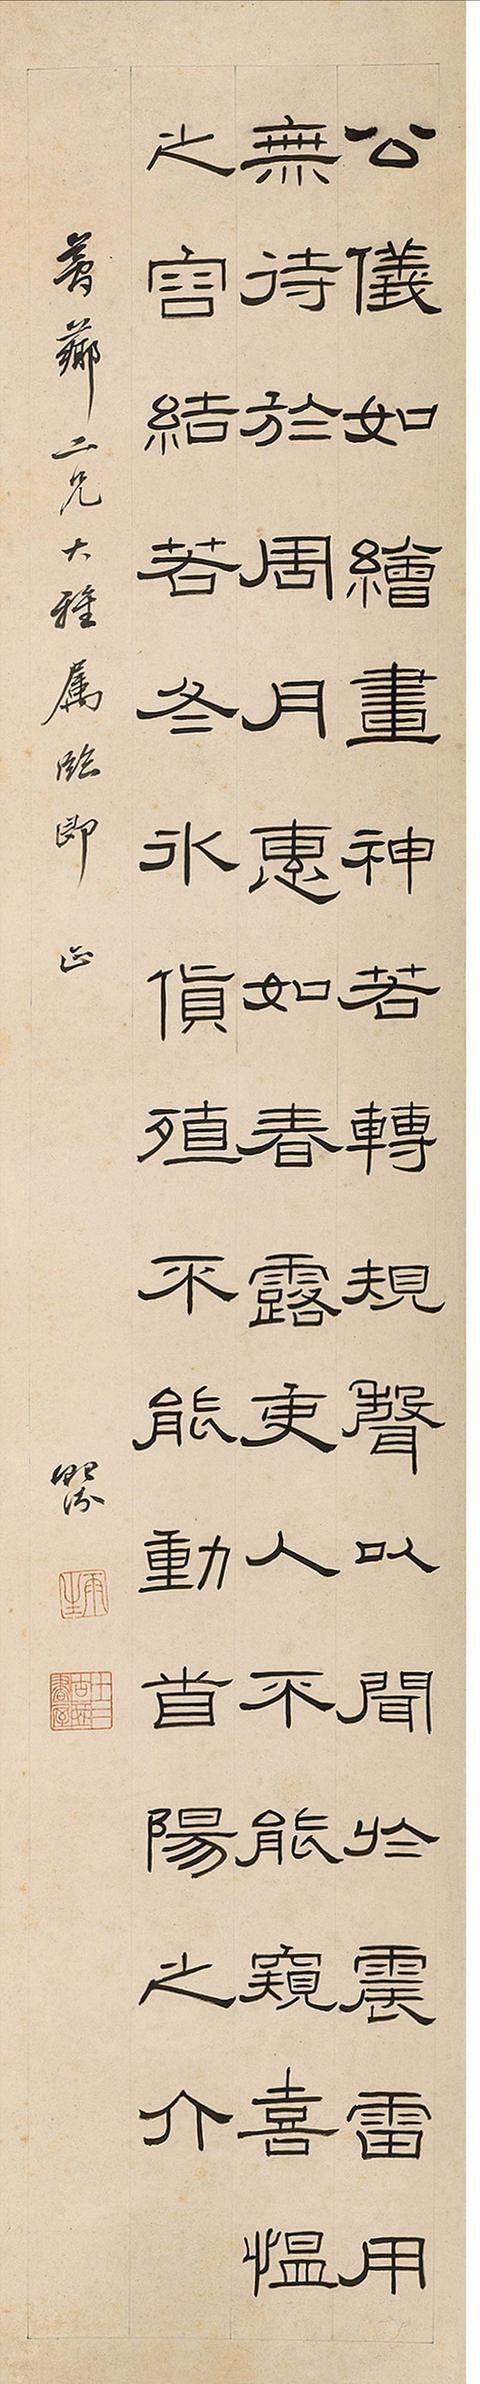 公儀如繪畫神若轉規聲以聞於震雷用
無待於周月惠如春露吏人不能窺喜慍
之容結若冬冰貨殖不能動首陽之介
薌二兄大雅屬臨即正